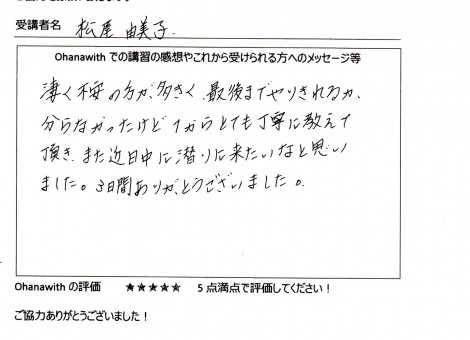 受講者名 松尾 由美子.
Ohanawith での講習の感想やこれから受けられる方へのメッセージ等
凄く不安の方が、多きく、最後までやりきれるか、
分らなかったけど 1からとても丁寧に教えて
頂き、また近日中に潜りに来たいなと思い
ました。3日間ありがとうございました。
Ohanawith の評価 ★★★★★ 5 点満点で評価してください！
ご協力ありがとうございました！